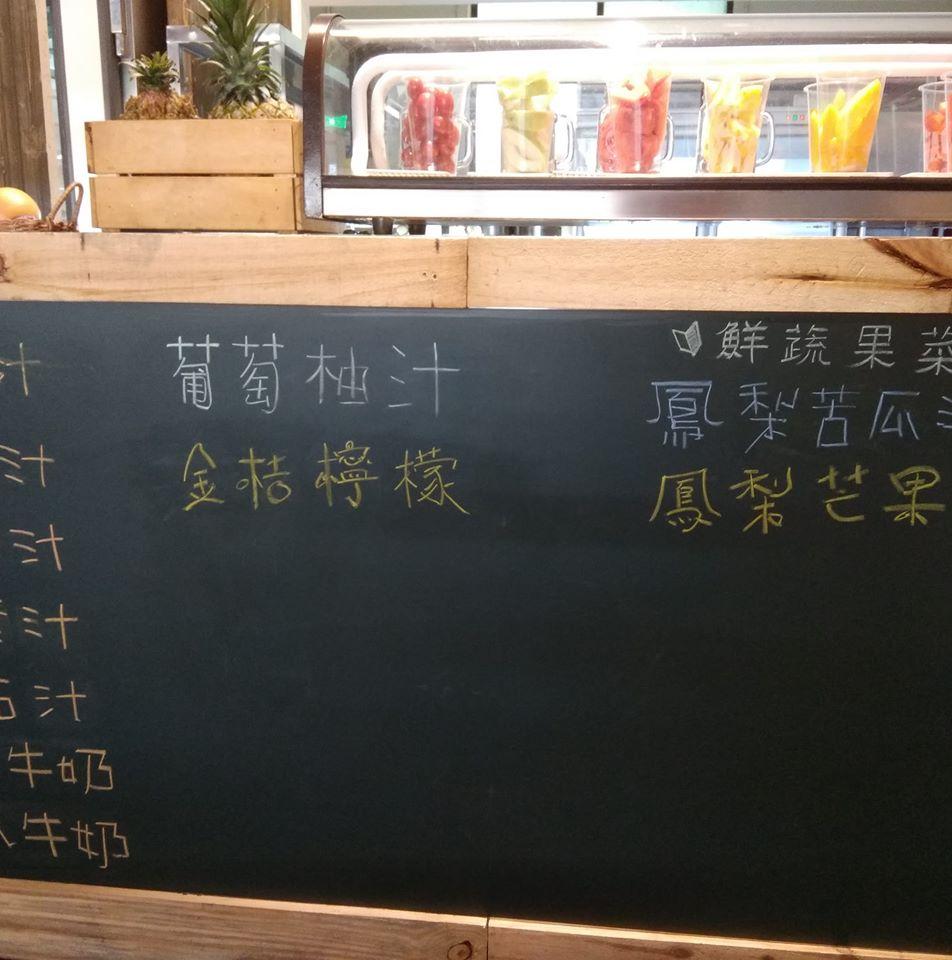 汁
汁
汁
汁
汁
牛奶
牛奶
葡萄柚汁
金桔檸檬
鮮蔬果菜
鳳梨苦瓜
鳳梨芒果